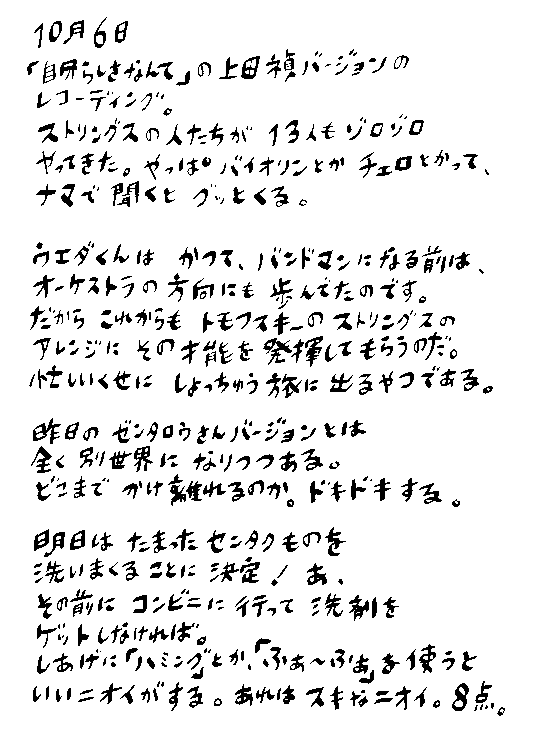 10月6日
「自分らしさなんて」の上田禎バージョンの
レコーディング。
ストリングスの人たちが 13人もゾロゾロ
やってきた。やっぱ バイオリンとか チェロとかって、
ナマで 聞くと グッとくる。
ウエダくんは かつて、バンドマンになる前は、
オーケストラの方向にも 歩んでたのです。
だから これからも トモフスキーの ストリングスの
アレンジに その才能を発揮してもらうのだ。
忙しいくせに しょっちゅう旅に出るやつである。
昨日の ゼンタロウさんバージョンとは
全く別世界に なりつつある。
どこまで かけ離れるのか。ドキドキする。
明日は たまった センタクものを
洗いまくることに 決定! あ、
その前に コンビニに行って 洗剤を
ゲットしなければ。
しあげに「ハミング」とか、「ふぁ〜ふぁ」を使うと
いいニオイがする。あれは スキなニオイ。8点。